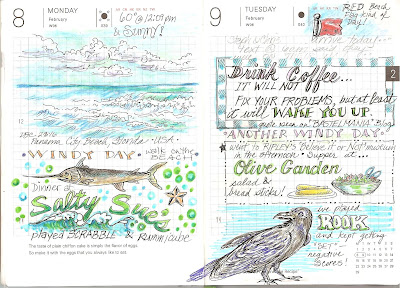 8 MONDAY
February
W06
039
60° @ 12:09 pm
& Sunny!
12
Panama City Beach, Florida • USA •
• WINDY DAY •
walk on the
BEACH
Dinner at
Salty Sue's
played SCRABBLE & Rummicube
The taste of plain chiffon cake is simply the flavor of eggs.
So make it with the eggs that you always like to eat.
9 TUESDAY
February
W06
040
RED Beach
Flag kind of
Day!
2
Drink Coffee...
IT WILL NOT
FIX YOUR PROBLEMS, but at least
it will WAKE YOU UP.
"PASTELMANIA" Blog
"ANOTHER WINDY DAY"
went to RIPLEY'S BELIEVE IT or NOT! museum
in the afternoon • Supper at...
Olive Garden
salad &
bread sticks!
We played
ROOK
and kept getting
"SET"
negative
scores!